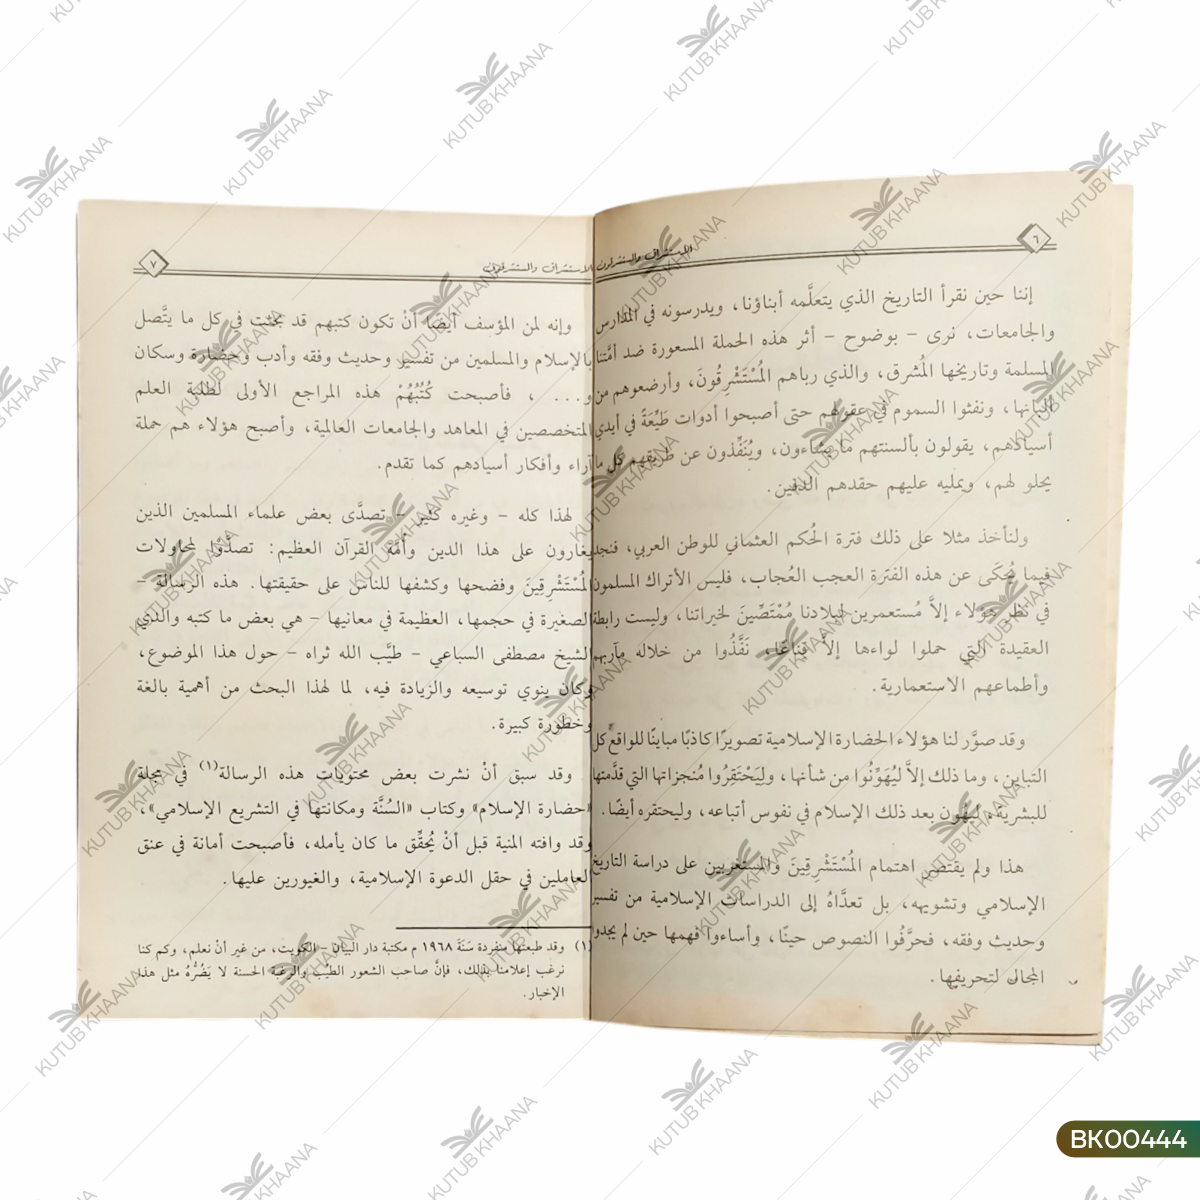 ٦
الاستشراق والمستشرقون
إننا حين نقرأ التاريخ الذي يتعلَّمه أبناؤنا، ويدرسونه في المدارس
والجامعات، نرى - بوضوح - أثر هذه الحملة المسعورة ضد أمَّتنا
المسلمة وتاريخها المُشرق، والذي رباهم المُسْتَشْرِقُونَ، وأرضعوهم من
ألبانها، ونفثوا السموم في عقولهم حتى أصبحوا أدوات طَيِّعَةً في أيدي
أسيادهم، يقولون بألسنتهم ما يشاءون، ويُنَفِّذون عن طريقهم كل ما
يحلو لهم، ويمليه عليهم حقدهم الدفين.
ولنأخذ مثلا على ذلك فترة الحُكم العثماني للوطن العربي، فنجد
فيما يُحكَى عن هذه الفترة العجب العُجاب، فليس الأتراك المسلمون
في نظر هؤلاء إلاَّ مُستعمرين لبلادنا مُمْتَصِّينَ لخيراتنا، وليست رابطة
العقيدة التي حملوا لواءها إلاَّ قِناعًا، نَفَّذُوا من خلاله مآربهم
وأطماعهم الاستعمارية.
وقد صوَّر لنا هؤلاء الحضارة الإسلامية تصويرًا كاذبًا مباينًا للواقع كل
التباين، وما ذلك إلاَّ ليُهَوِّنُوا من شأنها، وليَحْتَقِرُوا مُنجزاتها التي قدَّمتها
للبشرية، ليهُون بعد ذلك الإسلام في نفوس أتباعه، وليحتقره أيضًا.
هذا ولم يقتصر اهتمام المُسْتَشْرِقِينَ والمستغربين على دراسة التاريخ
الإسلامي وتشويهه، بل تعدَّاهُ إلى الدراسات الإسلامية من تفسير
وحديث وفقه، فحرَّفُوا النصوص حينًا، وأساءوا فهمها حين لم يجدوا
المجال لتحريفها.
الاستشراق والمستشرقون
٧
وإنه لمن المؤسف أيضًا أنْ تكون كتبهم قد بحثت في كل ما يتَّصل
بالإسلام والمسلمين من تفسير وحديث وفقه وأدب وحضارة وسكان
و... ، فأصبحت كُتُبُهُمْ هذه المراجع الأولى لطلبة العلم
المتخصصين في المعاهد والجامعات العالمية، وأصبح هؤلاء هم حملة
آراء وأفكار أسيادهم كما تقدم.
لهذا كله - وغيره كثير - تصدَّى بعض علماء المسلمين الذين
يغارون على هذا الدين وأمَّة القرآن العظيم: تصدَّوا لمحاولات
المُسْتَشْرِقِينَ وفضحها وكشفها للناس على حقيقتها. هذه الرسالة -
الصغيرة في حجمها، العظيمة في معانيها - هي بعض ما كتبه والذي
الشيخ مصطفى السباعي - طيَّب الله ثراه - حول هذا الموضوع،
وكان ينوي توسيعه والزيادة فيه، لما لهذا البحث من أهمية بالغة
وخطورة كبيرة.
وقد سبق أنْ نشرت بعض محتويات هذه الرسالة(١) في مجلة
«حضارة الإسلام» وكتاب «السُنَّة ومكانتها في التشريع الإسلامي»،
وقد وافته المنية قبل أنْ يُحقِّق ما كان يأمله، فأصبحت أمانة في عنق
العاملين في حقل الدعوة الإسلامية، والغيورين عليها.
(١) وقد طبعتها منفردة سَنَةَ ١٩٦٨ م مكتبة دار البيان - الكويت، من غير أنْ نعلم، وكم كنا
نرغب إعلامنا بذلك، فإنَّ صاحب الشعور الطيِّب والرغبة الحسنة لا يَضُرُّهُ مثل هذا
الإخبار.
KUTUB KHAANA
BK00444